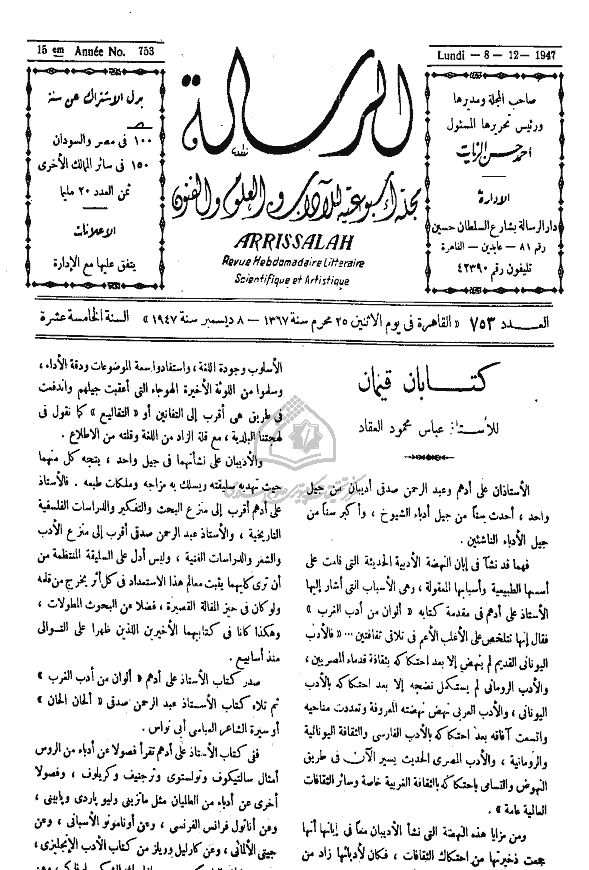 15 em Année No. 753
Lundi - 8 - 12 - 1947
بدل الاشتراك عن سنة
١٠٠ فى مصر والسودان
١٥٠ فى سائر الممالك الأخرى
ثمن العدد ٢٠ مليا
الاعلانات
يتفق عليها مع الإدارة
الرسالة
مجلة أسبوعية للآداب والعلوم والفنون
ARRISSALAH
Revue Hebdomadaire Litteraire
Scientifique et Artistique
صاحب المجلة ومديرها
ورئيس تحريرها المسئول
احمد حسن الزيات
الإدارة
دار الرسالة بشارع السلطان حسين
رقم ٨١ — عابدين — القاهرة
تليفون رقم ٤٢٣٩٠
العـــدد ٧٥٣ « القاهرة فى يوم الاثنين ٢٥ محرم سنة ١٣٦٧ — ٨ ديسمبر سنة ١٩٤٧ » السنة الخامسة عشرة
كتـــابان قيمان
للأستاذ عباس محمود العقاد
الأستاذان على أدهم وعبد الرحمن صدقى أديبان من جيل
واحد ، أحدث سناً من جيل أدباء الشيوخ ، وأكبر سناً من
جيل الأدباء الناشئين .
فهما قد نشآ فى إبان النهضة الأدبية الحديثة التى قامت على
أسسها الطبيعية وأسبابها المعقولة ، وهى الأسباب التى أشار إليها
الأستاذ على أدهم فى مقدمة كتابه « ألوان من أدب الغرب »
فقال إنها تتلخص على الأغلب الأعم فى تلاقى ثقافتين ... « فالأدب
اليونانى القديم لم ينهض إلا بعد احتكاكه بثقافة قدماء المصريين ،
والأدب الرومانى لم يستكمل نضجه إلا بعد احتكاكه بالأدب
اليونانى ، والأدب العربى نهض نهضته المعروفة وتعددت مناحيه
واتسعت آفاقه بعد احتكاكه بالأدب الفارسى والثقافة اليونانية
والرومانية ، والأدب المصرى الحديث يسير الآن فى طريق
النهوض والتسامى باحتكاكه بالثقافة الغربية خاصة وسائر الثقافات
العالمية عامة »
ومن مزايا هذه النهضة التى نشأ الأديبان معاً فى إبانها أنها
جمعت ذخيرتها من احتكاك الثقافات ، فكان لأدبائها زاد من
الأسلوب وجودة اللغة ، واستفادوا سعة الموضوعات ودقة الأداء ،
وسلموا من اللوثة الأخيرة الهوجاء التى أعقبت جيلهم واندفعت
فى طريق هى أقرب إلى التفانين أو « التقاليع » كما نقول فى
لهجتنا البلدية ، مع قلة الزاد من اللغة وقلته من الاطلاع .
والأديبان على نشأتهما فى جيل واحد ، يتجه كل منهما
حيث تهديه سليقته ويسلك به مزاجه وملكات طبعه . فالأستاذ
على أدهم أقرب إلى منزع البحث والتفكير والدراسات الفلسفية
التاريخية ، والأستاذ عبد الرحمن صدقى أقرب إلى منزع الأدب
والشعر والدراسات الفنية ، وليس أدل على السليقة المنتظمة من
أن ترى كليهما يثبت معالم هذا الاستعداد فى كل أثر يخرج من قلمه
ولو كان فى حيز المقالة القصيرة ، فضلا عن البحوث المطولات ،
وهكذا كانا فى كتابيهما الأخيرين اللذين ظهرا على التوالى
منذ أسابيع .
صدر كتاب الأستاذ على أدهم « ألوان من أدب الغرب »
ثم تلاه كتاب الأستاذ عبد الرحمن صدقى « ألحان الحان »
أو سيرة الشاعر العباسى أبى نواس .
ففى كتاب الأستاذ على أدهم تقرأ فصولا عن أدباء من الروس
أمثال سالتيكوف وتولستوى وترجنيف وكريلوف ، وفصولا
أخرى عن أدباء من الطليان مثل ماتزينى وليو باردى وبابينى ،
وعن أناتول فرانس الفرنسى ، وعن أونامونو الأسبانى ، وعن
جيتى الألمانى ، وعن كارليل وويلز من كتاب الأدب الإنجليزى ،